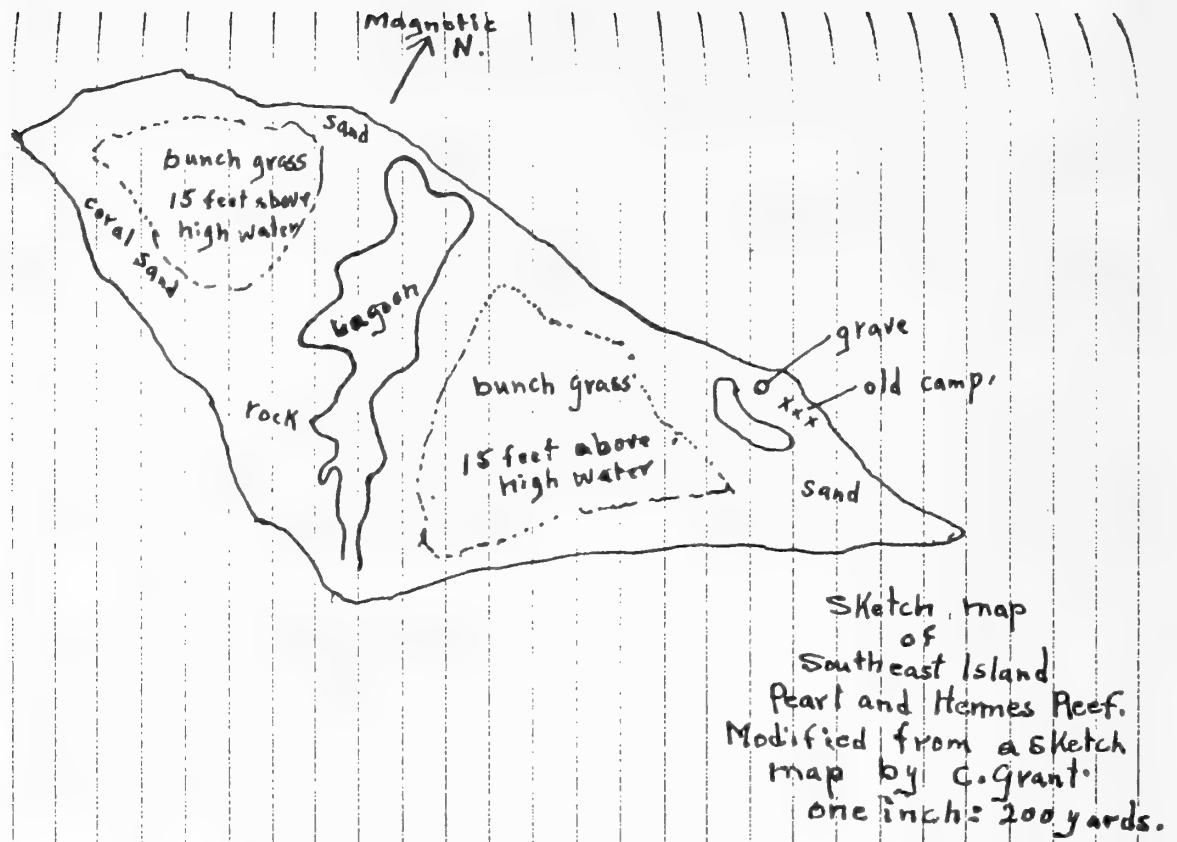 Magnetic
N.
sand
bunch grass
15 feet above
high water
coral
sand
Lagoon
rock
grave
old camp.
bunch grass
15 feet above
high water
sand
Sketch map
of
Southeast Island
Pearl and Hermes Reef.
Modified from a sketch
map by C. Grant.
one inch = 200 yards.